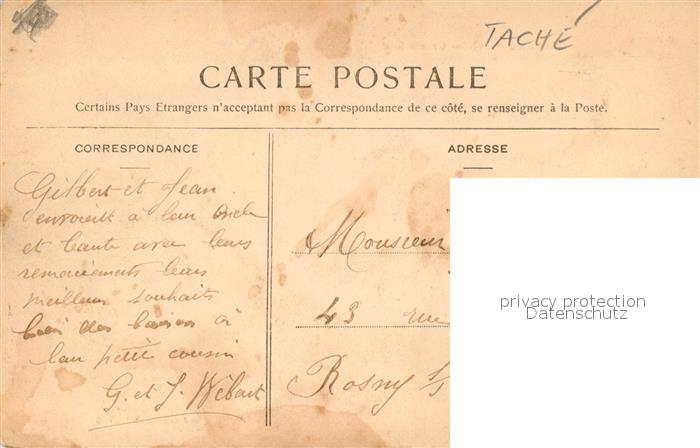 TACHÉ
CARTE POSTALE
Certains Pays Etrangers n'acceptant pas la Correspondance de ce côté, se renseigner à la Poste.
CORRESPONDANCE
Gilbert et Jean
envoient à leur oncle
et tante avec leurs
remerciements leurs
meilleurs souhaits
des baisers à
leur petit cousin
G. et J.
ADRESSE
Monsieur
43 rue
Rosny s/s
privacy protection
Datenschutz